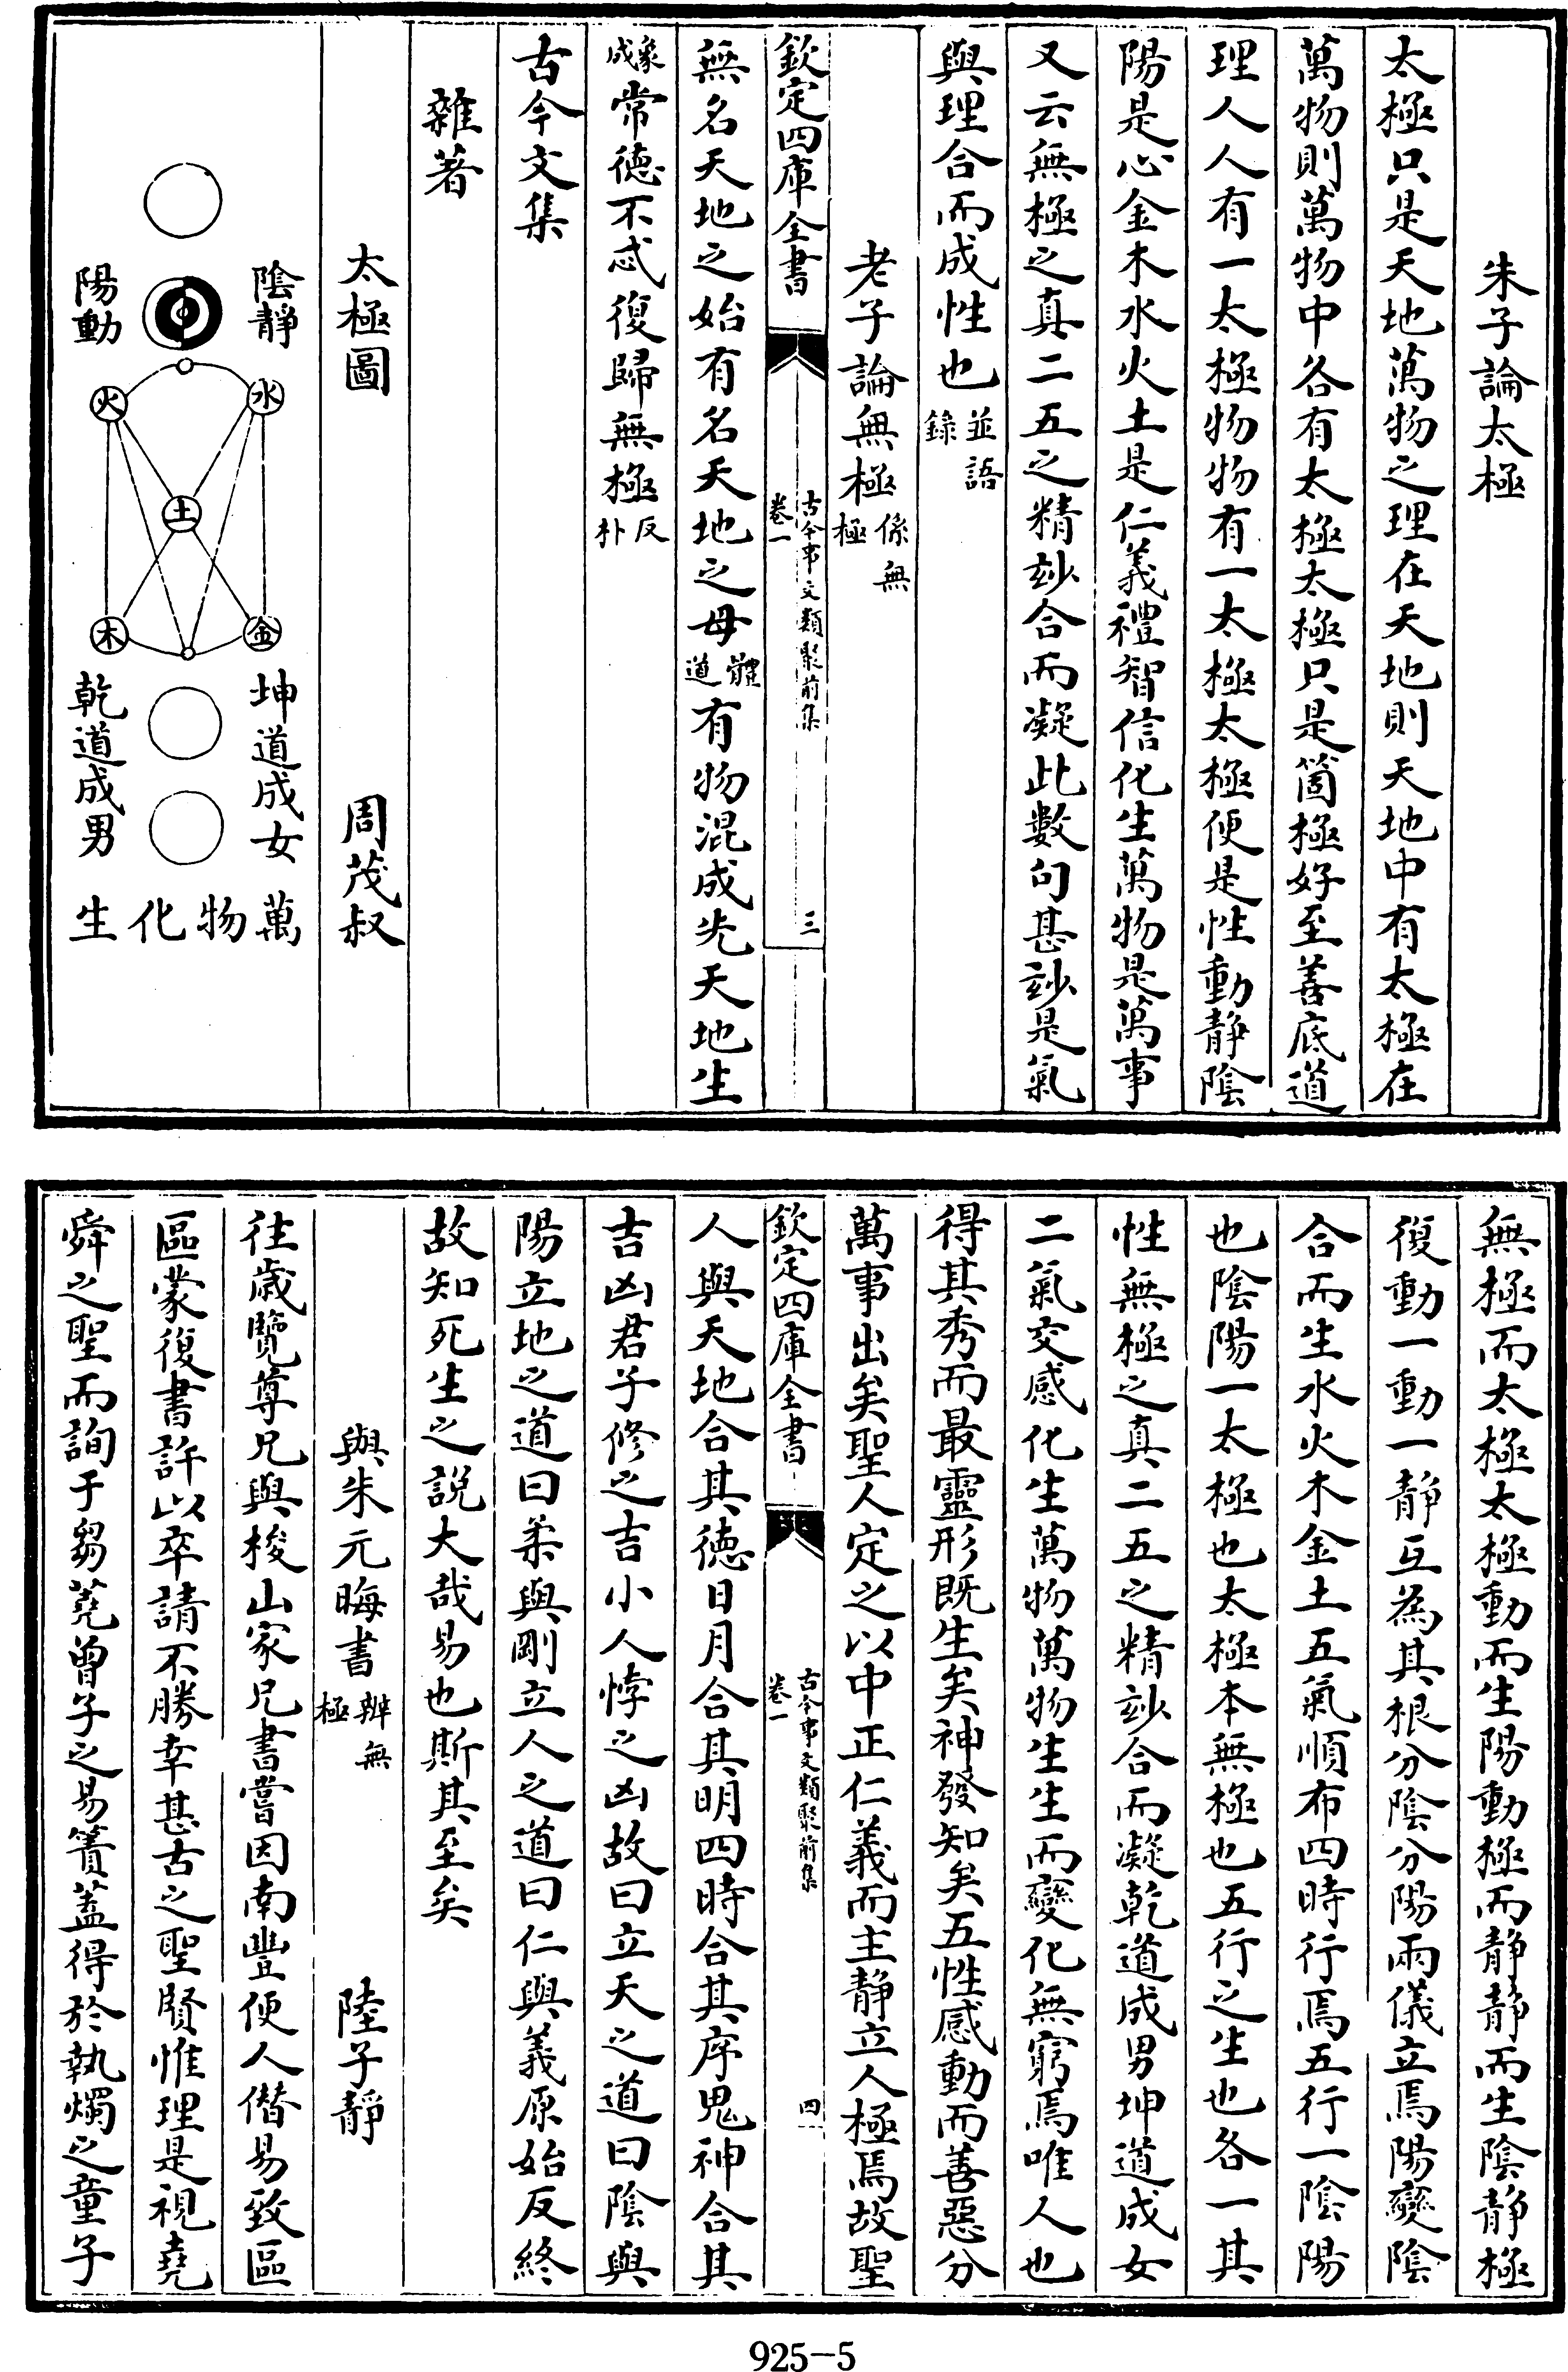 朱子論太極
太極只是天地萬物之理在天地則天地中有太極在
萬物則萬物中各有太極太極只是箇極好至善底道
理人人有一太極物物有一太極太極便是性動靜陰
陽是心金木水火土是仁義禮智信化生萬物是萬事
又云無極之真二五之精玅合而凝此數句甚玅是氣
與理合而成性也並語錄
老子論無極係無極
欽定四庫全書
古今事文類聚前集
卷一
三
無名天地之始有名天地之母體道有物混成先天地生
象成常德不忒復歸無極反朴
古今文集
雜著
太極圖 周茂叔
陰靜
陽動
水
火
土
金
木
坤道成女
乾道成男
萬物化生
無極而太極太極動而生陽動極而靜靜而生陰靜極
復動一動一靜互為其根分陰分陽兩儀立焉陽變陰
合而生水火木金土五氣順布四時行焉五行一陰陽
也陰陽一太極也太極本無極也五行之生也各一其
性無極之真二五之精玅合而凝乾道成男坤道成女
二氣交感化生萬物萬物生生而變化無窮焉唯人也
得其秀而最靈形既生矣神發知矣五性感動而善惡分
萬事出矣聖人定之以中正仁義而主靜立人極焉故聖
欽定四庫全書
古今事文類聚前集
卷一
四
人與天地合其德日月合其明四時合其序鬼神合其
吉凶君子修之吉小人悖之凶故曰立天之道曰陰與
陽立地之道曰柔與剛立人之道曰仁與義原始反終
故知死生之説大哉易也斯其至矣
與朱元晦書辨無極 陸子靜
往歲覽尊兄與梭山家兄書嘗因南豐便人僣易致區
區蒙復書許以卒請不勝幸甚古之聖賢惟理是視堯
舜之聖而詢于芻蕘曾子之易簀蓋得於執燭之童子
925-5